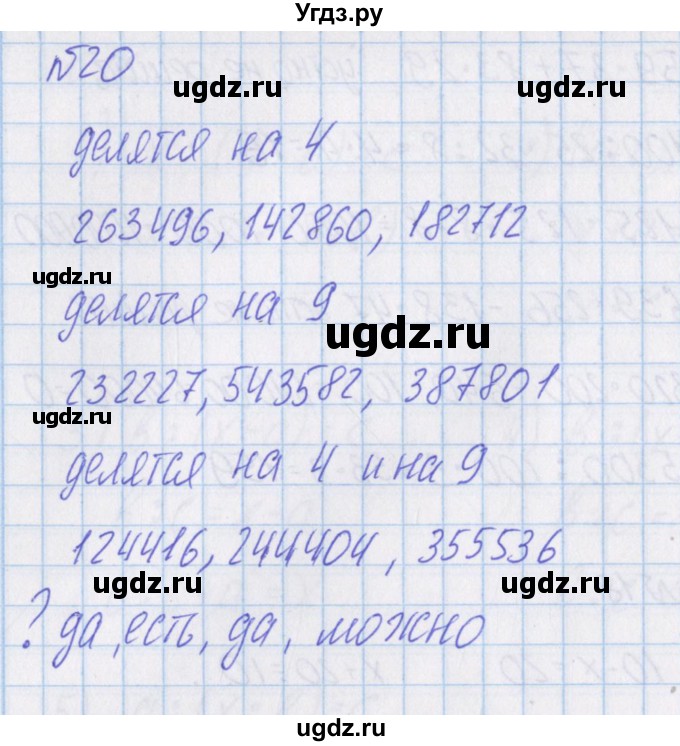 Угдз.ру
№20
ugdz.ru ugdz.ru
делятся на 4
263496, 142860, 182712
ugdz.ru
делятся на 9
ugdz.ru
232227, 543582, 387801
ugdz.ru
делятся на 4 и на 9
124416, 244404, 355536
ugdz.ru ugdz.ru
? да, есть, да, можно
ugdz.ru